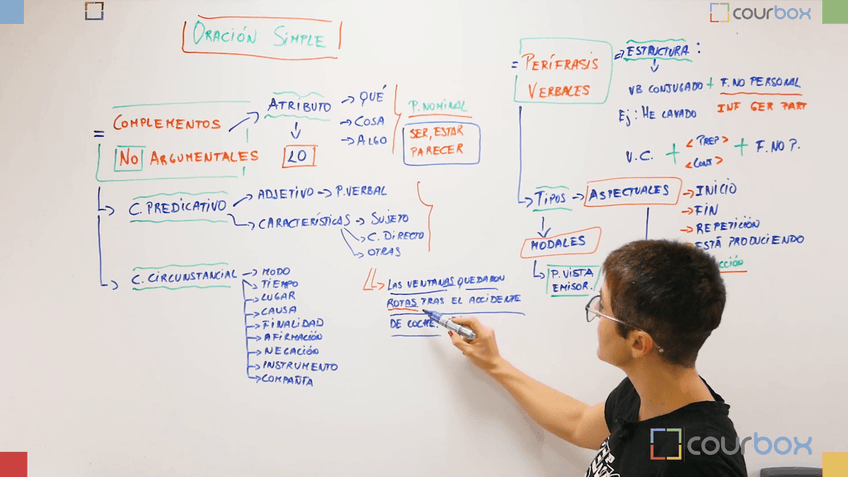 courbox
ORACIÓN SIMPLE
= COMPLEMENTOS
NO ARGUMENTALES
ATRIBUTO → QUÉ
→ COSA
→ ALGO
LO
P. NOMINAL
SER, ESTAR
PARECER
C. PREDICATIVO
→ ADJETIVO → P. VERBAL
→ CARACTERÍSTICAS → SUJETO
→ C. DIRECTO
→ OTRAS
C. CIRCUNSTANCIAL → MODO
→ TIEMPO
→ LUGAR
→ CAUSA
→ FINALIDAD
→ AFIRMACIÓN
→ NEGACIÓN
→ INSTRUMENTO
→ COMPAÑÍA
LAS VENTANAS QUEDARON
ROTAS TRAS EL ACCIDENTE
DE COCHE.
= PERÍFRASIS
VERBALES
→ ESTRUCTURA:
VB CONJUGADO + F. NO PERSONAL
INF GER PART
Ej: HE LAVADO
V.C. + <PREP> <CONJ> + F. NO P.
TIPOS → ASPECTUALES → INICIO
→ FIN
→ REPETICIÓN
ESTÁ PRODUCIENDO
MODALES
→ P. VISTA
EMISOR.
courbox